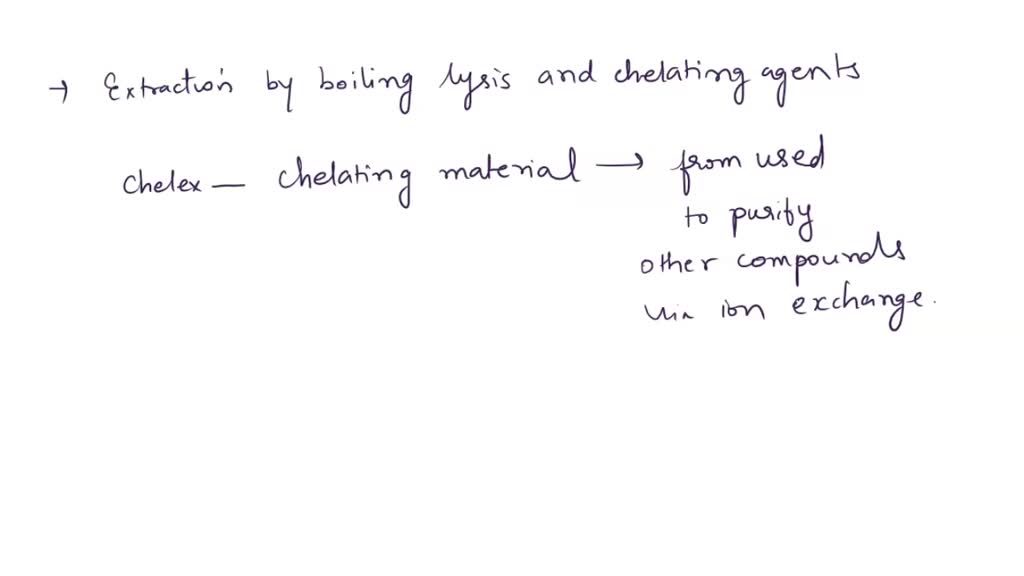 → Extraction by boiling lysis and chelating agents
Chelex — chelating material → from used
to purify
other compounds
via ion exchange.